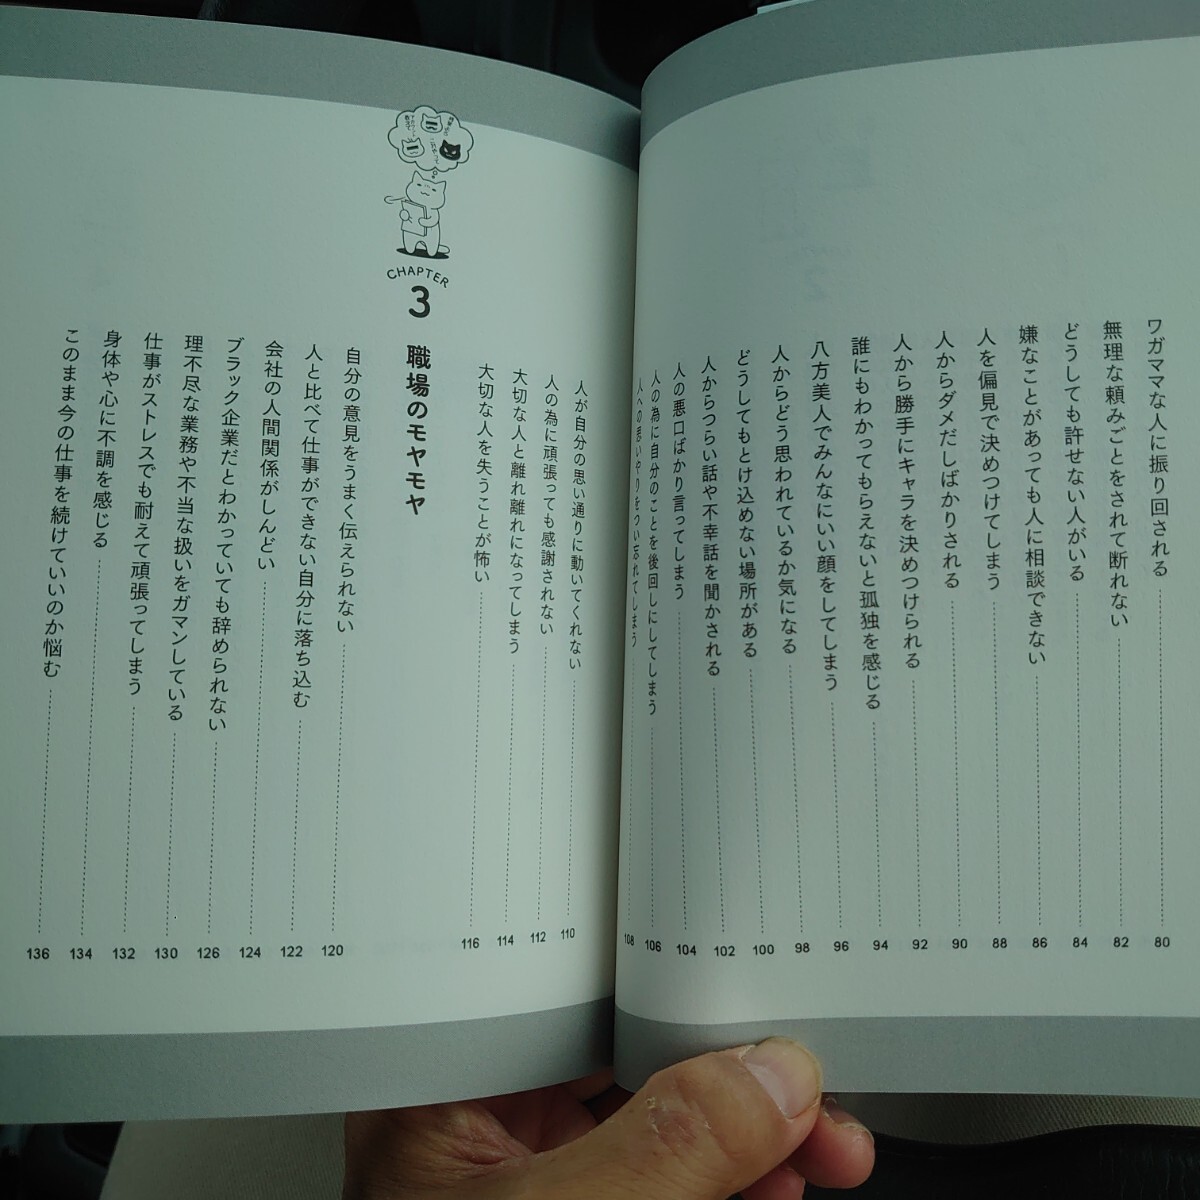 ワガママな人に振り回される 80
無理な頼みごとをされて断れない 82
どうしても許せない人がいる 84
嫌なことがあっても人に相談できない 86
人を偏見で決めつけてしまう 88
人からダメだしばかりされる 90
人から勝手にキャラを決めつけられる 92
誰にもわかってもらえないと孤独を感じる 94
八方美人でみんなにいい顔をしてしまう 96
人からどう思われているか気になる 98
どうしてもとけ込めない場所がある 100
人からつらい話や不幸話を聞かされる 102
人の悪口ばかり言ってしまう 104
人の為に自分のことを後回しにしてしまう 106
人への思いやりをつい忘れてしまう 108
人が自分の思い通りに動いてくれない 110
人の為に頑張っても感謝されない 112
大切な人と離れ離れになってしまう 114
大切な人を失うことが怖い 116
CHAPTER
3 職場のモヤモヤ
自分の意見をうまく伝えられない 120
人と比べて仕事ができない自分に落ち込む 122
会社の人間関係がしんどい 124
ブラック企業だとわかっていても辞められない 126
理不尽な業務や不当な扱いをガマンしている 130
仕事がストレスでも耐えて頑張ってしまう 132
身体や心に不調を感じる 134
このまま今の仕事を続けていいのか悩む 136